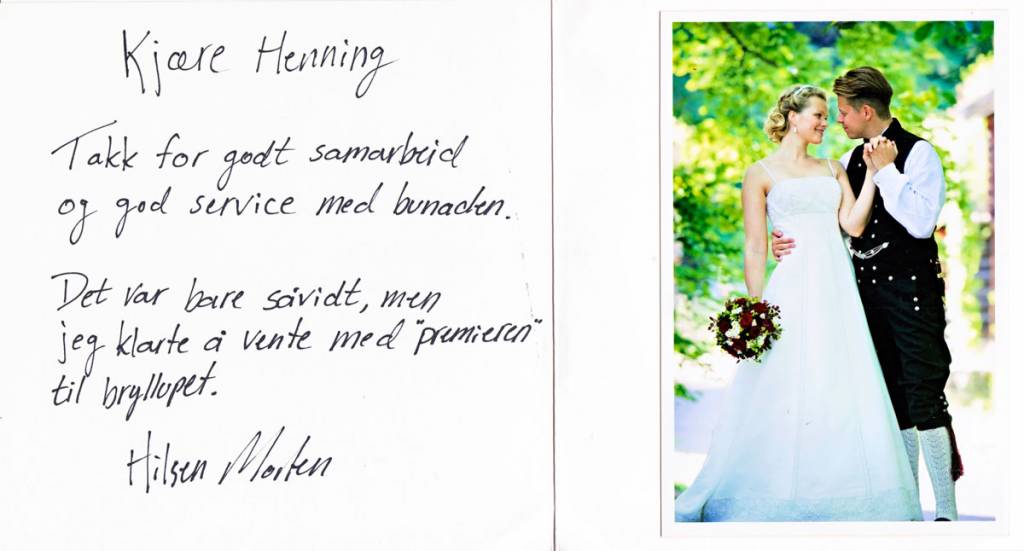 Kjære Henning
Takk for godt samarbeid
og god service med bunaden.
Det var bare såvidt, men
jeg klarte å vente med "premieren"
til bryllupet.
Hilsen Morten